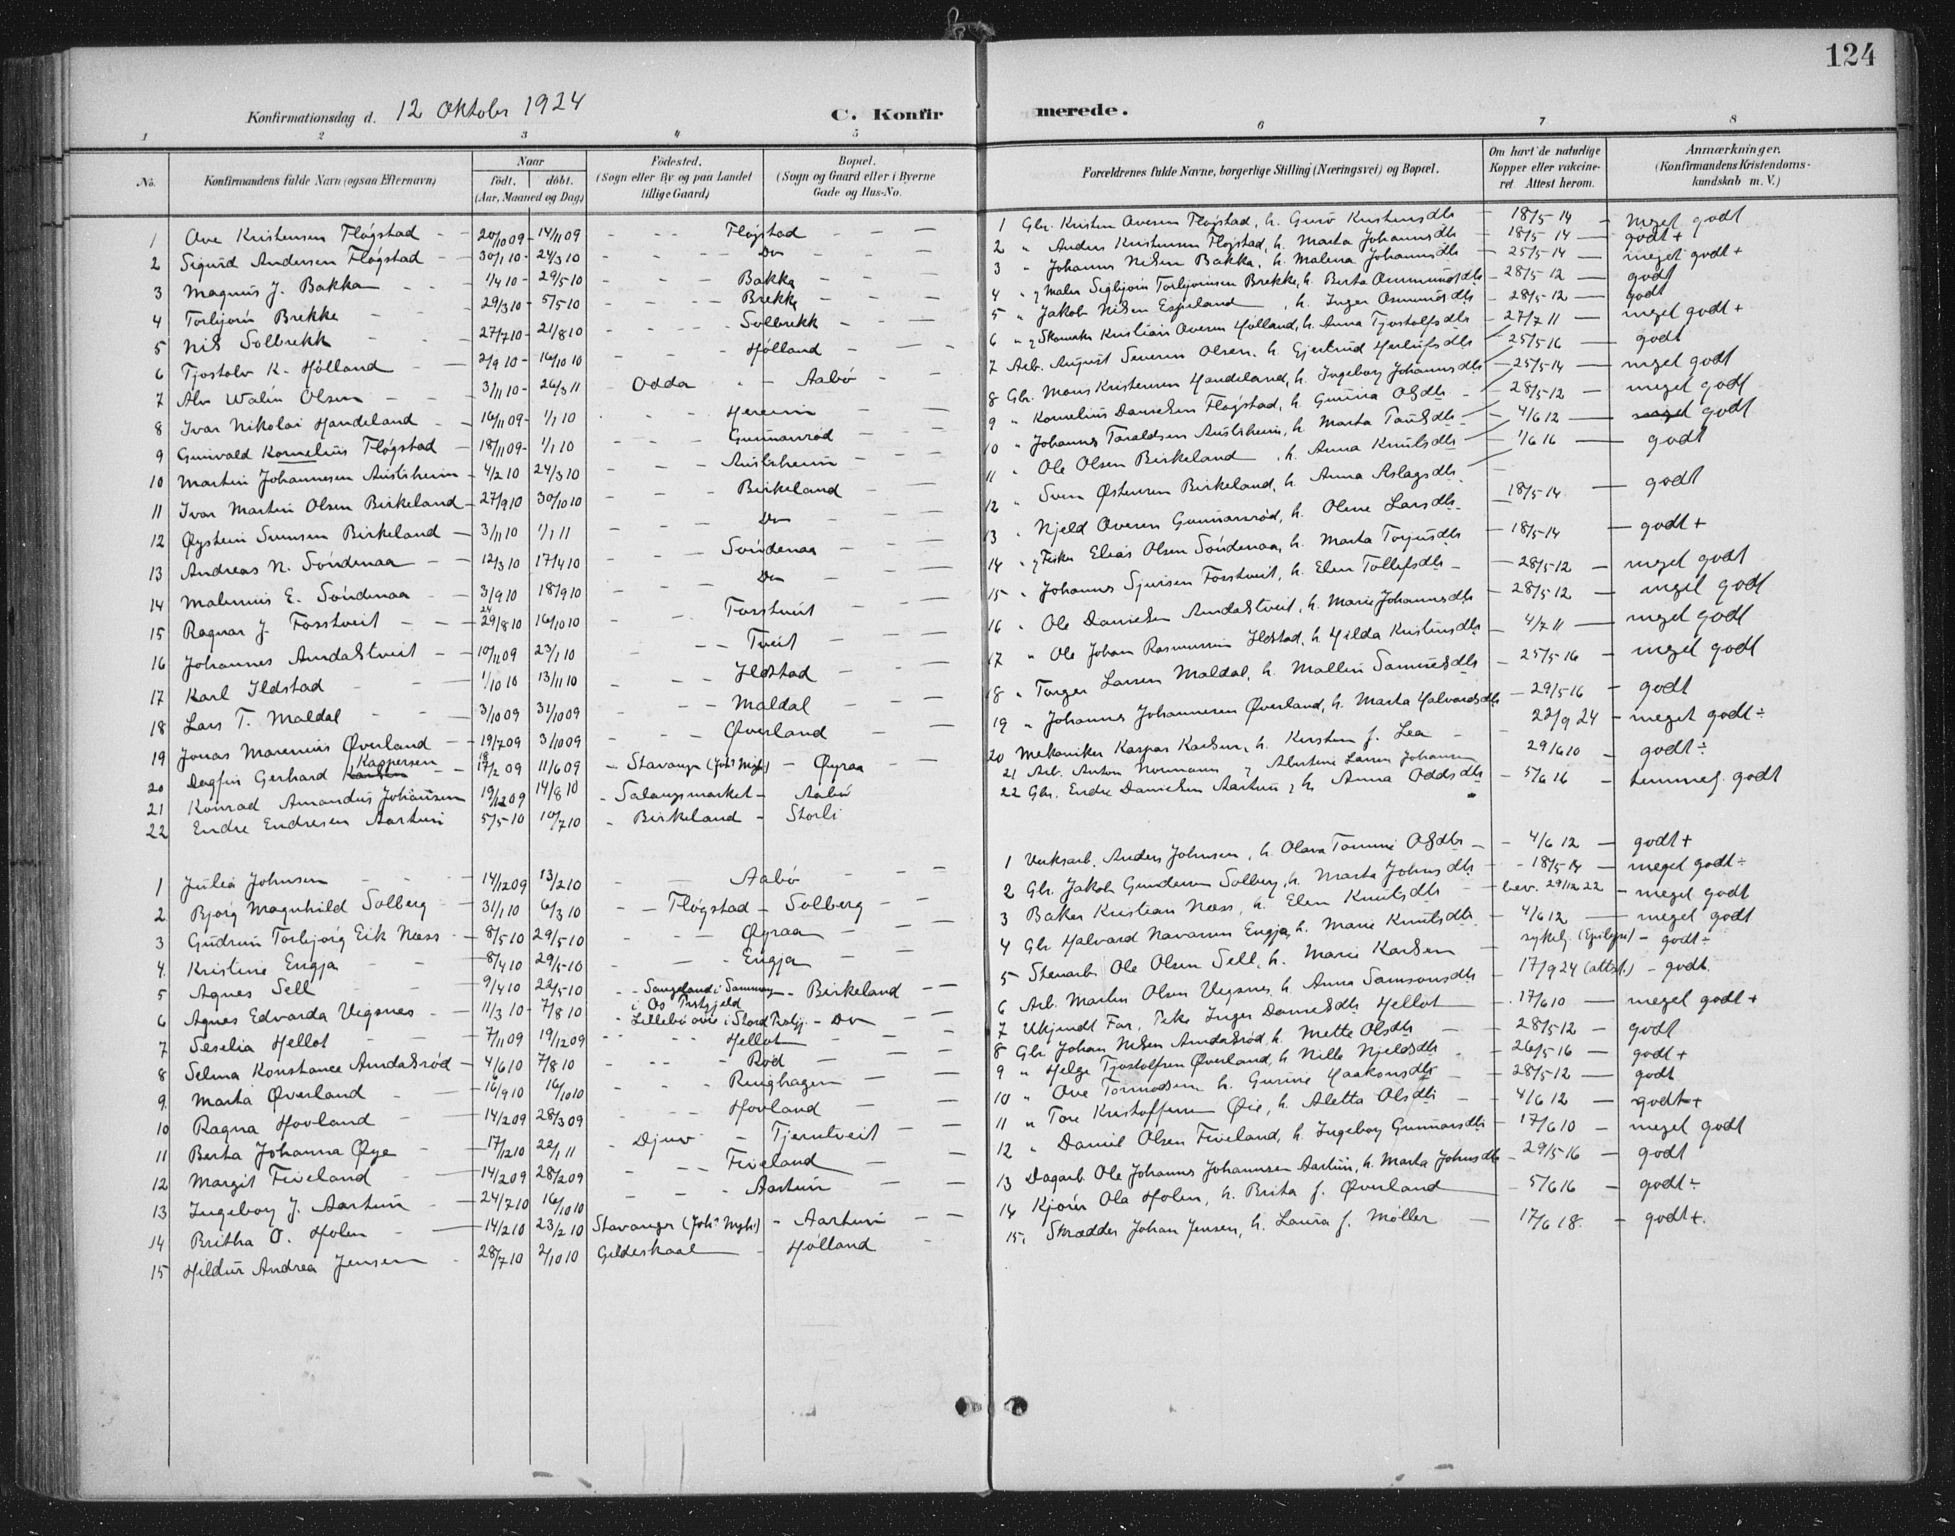 124
Konfirmationsdag d. 12 Oktober 1924 C. Konfirmerede.
1 2 3 4 5 6 7 8
No. Konfirmandens fulde Navn (ogsaa Efternavn) Naar födt. döbt. (Aar, Maaned og Dag) Födested. (Sogn eller By og paa Landet tillige Gaard) Bopæl. (Sogn og Gaard eller i Byerne Gade og Hus-No. Forældrenes fulde Navne, borgerlige Stilling (Næringsvei) og Bopæl. Om havt de naturlige Kopper eller vakcineret. Attest herom. Anmærkninger. (Konfirmandens Kristendomskundskab m. V.)
1 Ove Kristensen Fløgstad 20/10 09 14/11 09 Fløgstad 1 Gbr. Kristen Ovesen Fløgstad, h. Guro Kristensdtr 18/5 14 meget godt
2 Sigurd Andersen Fløgstad 30/1 10 24/3 10 Do 2 " Anders Kristensen Fløgstad, h. Marta Johannesdtr 18/5 14 godt +
3 Magnus J. Bakka 1/4 10 29/5 10 Bakka 3 " Johannes Nilsen Bakka, h. Malena Johannesdtr 25/5 14 meget godt +
4 Torbjørn Brekke 29/3 10 5/5 10 Brekke 4 " Maler Sigbjørn Torbjørnsen Brekke, h. Berta Osmundsdtr 28/5 12 godt
5 Nils Solbrekk 27/7 10 21/8 10 Solbrekk 5 " Jakob Nilsen Espeland, h. Inger Osmundsdtr 28/5 12 godt
6 Tjostolv K. Hølland 2/9 10 16/10 10 Hølland 6 " Skomaker Kristian Ovesen Hølland, h. Anna Tjostolfsdtr 27/7 11 meget godt +
7 Alv Walin Olsen 3/11 10 26/3 11 Odda Aabø 7 Arb. August Severin Olsen, h. Gjertrud Herlufsdtr 25/5 16 godt
8 Ivar Nikolai Handeland 16/11 09 1/1 10 8 Gbr. Mons Kristensen Handeland, h. Ingeborg Johannesdtr 25/5 14 meget godt
9 Gunvald Kornelius Fløgstad 18/11 09 1/1 10 Gunnarsrød 9 " Kornelius Danielsen Fløgstad, h. Gurina Olsdtr 28/5 12 meget godt
10 Martin Johannesen Austsheim 4/2 10 24/3 10 Austsheim 10 " Johannes Taraldsen Austsheim, h. Marta Paulsdtr 4/6 12 godt
11 Ivar Martin Olsen Birkeland 27/9 10 30/10 10 Birkeland 11 " Ole Olsen Birkeland, h. Anna Knutsdtr 1/6 16 godt
12 Øystein Svensen Birkeland 3/11 10 1/1 11 Do 12 " Sven Østensen Birkeland, h. Anna Aslagsdtr godt
13 Andreas N. Søndenaa 12/3 10 17/4 10 Søndenaa 13 " Njeld Ovesen Gunnarsrød, h. Olene Larsdtr 18/5 14 godt +
14 Malenius E. Søndenaa 3/9 10 18/9 10 Do 14 " Fisker Elias Olsen Søndenaa, h. Marta Torjusdtr 18/5 14 meget godt
15 Ragnar J. Fosstveit 29/8 10 16/10 10 Fosstveit 15 " Johannes Sjursen Fosstveit, h. Elen Tollefsdtr 28/5 12 meget godt
16 Johannes Amdalstveit 10/11 09 23/1 10 Tveit 16 " Ole Danielsen Amdalstveit, h. Marie Johannesdtr 28/5 12 meget godt
17 Karl Ilstad 1/10 10 13/11 10 Ilstad 17 " Ole Johan Rasmussen Ilstad, h. Hilda Kristensdtr 4/7 11 meget godt
18 Lars T. Maldal 3/10 09 31/10 09 Maldal 18 " Torger Larsen Maldal, h. Mallin Samuelsdtr 25/5 16 godt
19 Jonas Marenius Øverland 19/7 09 3/10 09 Øverland 19 " Johannes Johannesen Øverland, h. Marta Halvardsdtr 29/5 16 meget godt ÷
20 Dagfin Gerhard Kaspersen 17/2 09 11/6 09 Stavanger Øyraa 20 Mekaniker Kaspar Karlsen, h. Kirsten f. Lea 22/9 24 godt ÷
21 Konrad Amandus Johansen 19/12 09 14/8 10 Salangsmarket Aabø 21 Arb. Anton Normann 29/6 10 temmel. godt
22 Endre Endresen Aartun 5/5 10 10/7 10 Birkeland Storli 22 Gbr. Endre Danielsen Aartun, h. Anna Oddsdtr 5/6 16
1 Julia Johnsen 14/12 09 13/2 10 Aabø 1 Verksarb. Anders Johnsen, h. Olava Tomine Olsdtr 4/6 12 godt +
2 Bjørg Magnhild Solberg 31/1 10 6/3 10 Fløgstad Solberg 2 Gbr. Jakob Gundersen Solberg, h. Marta Johnsdtr 18/5 14 meget godt ÷
3 Gudrun Torbjørg Eik Næss 8/5 10 29/5 10 Øyraa 3 Baker Kristian Næss, h. Elen Knutsdtr bev. 29/12 22 meget godt
4 Kristine Engja 8/4 10 29/5 10 Engja 4 Gbr Halvard Navarsen Engja, h. Marie Knutsdtr 4/6 12 meget godt
5 Agnes Sell 9/4 10 22/5 10 i Os Prstgjeld Birkeland 5 Stenarb. Ole Olsen Sell, h. Marie Karlsen sykelig (Epilepsi) godt ÷
6 Agnes Edvarda Vegsnes 11/3 10 7/8 10 Lillebø ovre i Stord Prstgj. Do 6 Arb. Martin Olsen Vegsnes, h. Anna Samsonsdtr 17/9 24 (attst.) godt.
7 Seselia Hellot 7/11 09 19/12 09 Hellot 7 Ukjendt Far, Pike Inger Danielsdtr Hellot 17/6 10 meget godt +
8 Selma Konstance Amdalsrød 4/6 10 7/8 10 Rød 8 Gbr. Johan Nilsen Amdalsrød, h. Mette Olsdtr 28/5 12 godt
9 Marta Øverland 16/9 10 16/10 10 Ringhagen 9 " Helge Tjostolfsen Øverland, h. Nille Njeldsdtr 26/5 16 godt +
10 Ragna Hovland 14/2 09 28/3 09 Hovland 10 " Ove Tormodsen h. Gurine Haakonsdtr 28/5 12 godt
11 Berta Johanna Øye 17/12 10 22/1 11 Djuv Tjerntveit 11 " Tore Kristoffersen Øie, h. Aletta Olsdtr 4/6 12 godt +
12 Margit Fiveland 14/2 09 28/2 09 Fiveland 12 " Daniel Olsen Fiveland, h. Ingeborg Gunnarsdtr 17/6 10 meget godt
13 Ingeborg J. Aartun 24/7 10 16/10 10 Aartun 13 Dagarb. Ole Johannes Johannesen Aartun, h. Marta Johnsdtr 29/5 16 godt
14 Britha O. Holen 14/2 10 23/2 10 Stavanger Aartun 14 Kjører Ola Holen, h. Brita f. Øverland 5/6 16 godt ÷
15 Hildur Andrea Jensen 28/7 10 2/10 10 Gildeskaal Hølland 15. Skrædder Johan Jensen, h. Laura f. Møller 17/6 18. godt +.